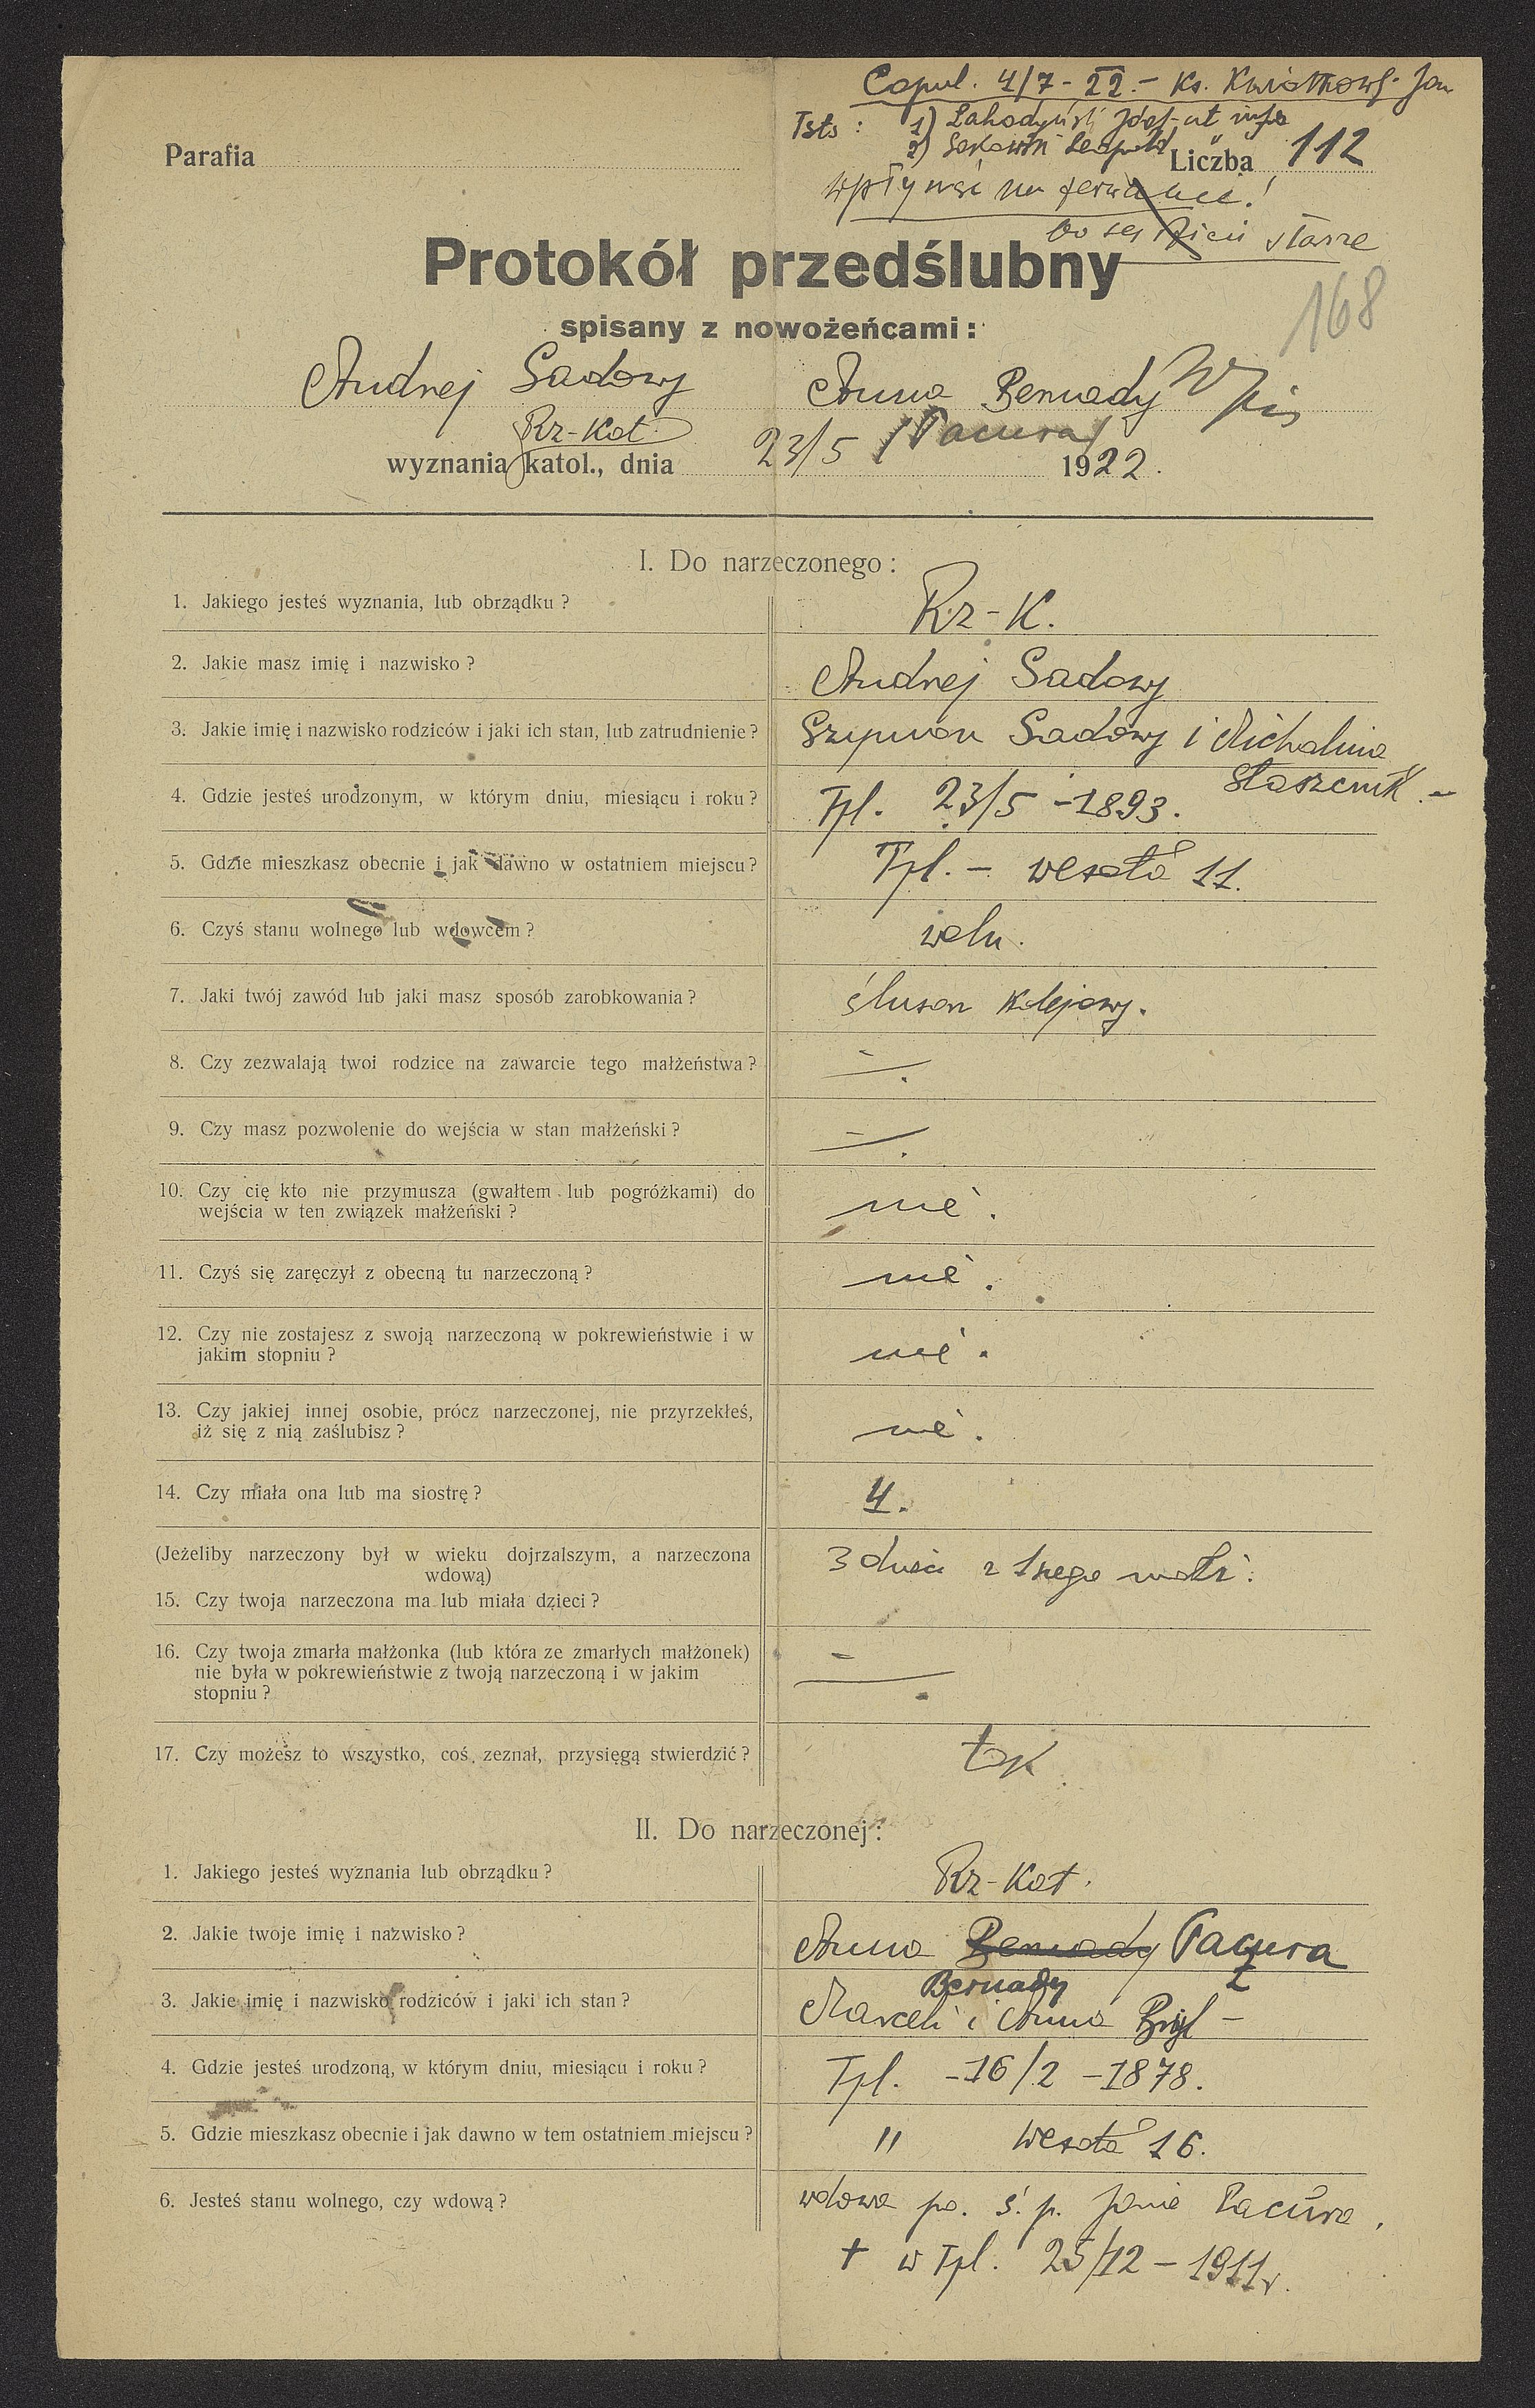 Copul. 4/7 - 22. - Ks. Kwiatkows. Jan
Tsts : 1) Zahodyński Józef
2) Leopold
Parafia Liczba 112
wpływać na
starsze
Protokół przedślubny
168
spisany z nowożeńcami:
Andrzej Sadowy Anna Bernady Wpis
Rz-Kat. /Pacura/
wyznania katol., dnia 23/5 1922.
I. Do narzeczonego:
1. Jakiego jesteś wyznania, lub obrządku? Rz-K.
2. Jakie masz imię i nazwisko? Andrzej Sadowy
3. Jakie imię i nazwisko rodziców i jaki ich stan, lub zatrudnienie? Szymon Sadowy i Michalina
4. Gdzie jesteś urodzonym, w którym dniu, miesiącu i roku? Tpl. 23/5 - 1893. Staszczuk. -
5. Gdzie mieszkasz obecnie i jak dawno w ostatniem miejscu? Tpl. - wesoła 11.
6. Czyś stanu wolnego lub wdowcem? woln.
7. Jaki twój zawód lub jaki masz sposób zarobkowania? ślusarz kolejowy.
8. Czy zezwalają twoi rodzice na zawarcie tego małżeństwa? -.
9. Czy masz pozwolenie do wejścia w stan małżeński? -.
10. Czy cię kto nie przymusza (gwałtem lub pogróżkami) do
wejścia w ten związek małżeński? nie.
11. Czyś się zaręczył z obecną tu narzeczoną? nie.
12. Czy nie zostajesz z swoją narzeczoną w pokrewieństwie i w
jakim stopniu? nie.
13. Czy jakiej innej osobie, prócz narzeczonej, nie przyrzekłeś,
iż się z nią zaślubisz? nie.
14. Czy miała ona lub ma siostrę? 4.
(Jeżeliby narzeczony był w wieku dojrzalszym, a narzeczona
wdową) 3 dzieci z 1szego małż.
15. Czy twoja narzeczona ma lub miała dzieci?
16. Czy twoja zmarła małżonka (lub która ze zmarłych małżonek)
nie była w pokrewieństwie z twoją narzeczoną i w jakim
stopniu? -.
17. Czy możesz to wszystko, coś zeznał, przysięgą stwierdzić? tak
II. Do narzeczonej:
1. Jakiego jesteś wyznania lub obrządku? Rz-Kat.
2. Jakie twoje imię i nazwisko? Anna Bernady Pacura
Bernady
3. Jakie imię i nazwisko rodziców i jaki ich stan? Marceli i Anna Brygl -
4. Gdzie jesteś urodzoną, w którym dniu, miesiącu i roku? Tpl. - 16/2 - 1878.
5. Gdzie mieszkasz obecnie i jak dawno w tem ostatniem miejscu? " wesoła 16.
6. Jesteś stanu wolnego, czy wdową? wdowa po ś. p. Janie Pacura.
+ w Tpl. 25/12 - 1911r.